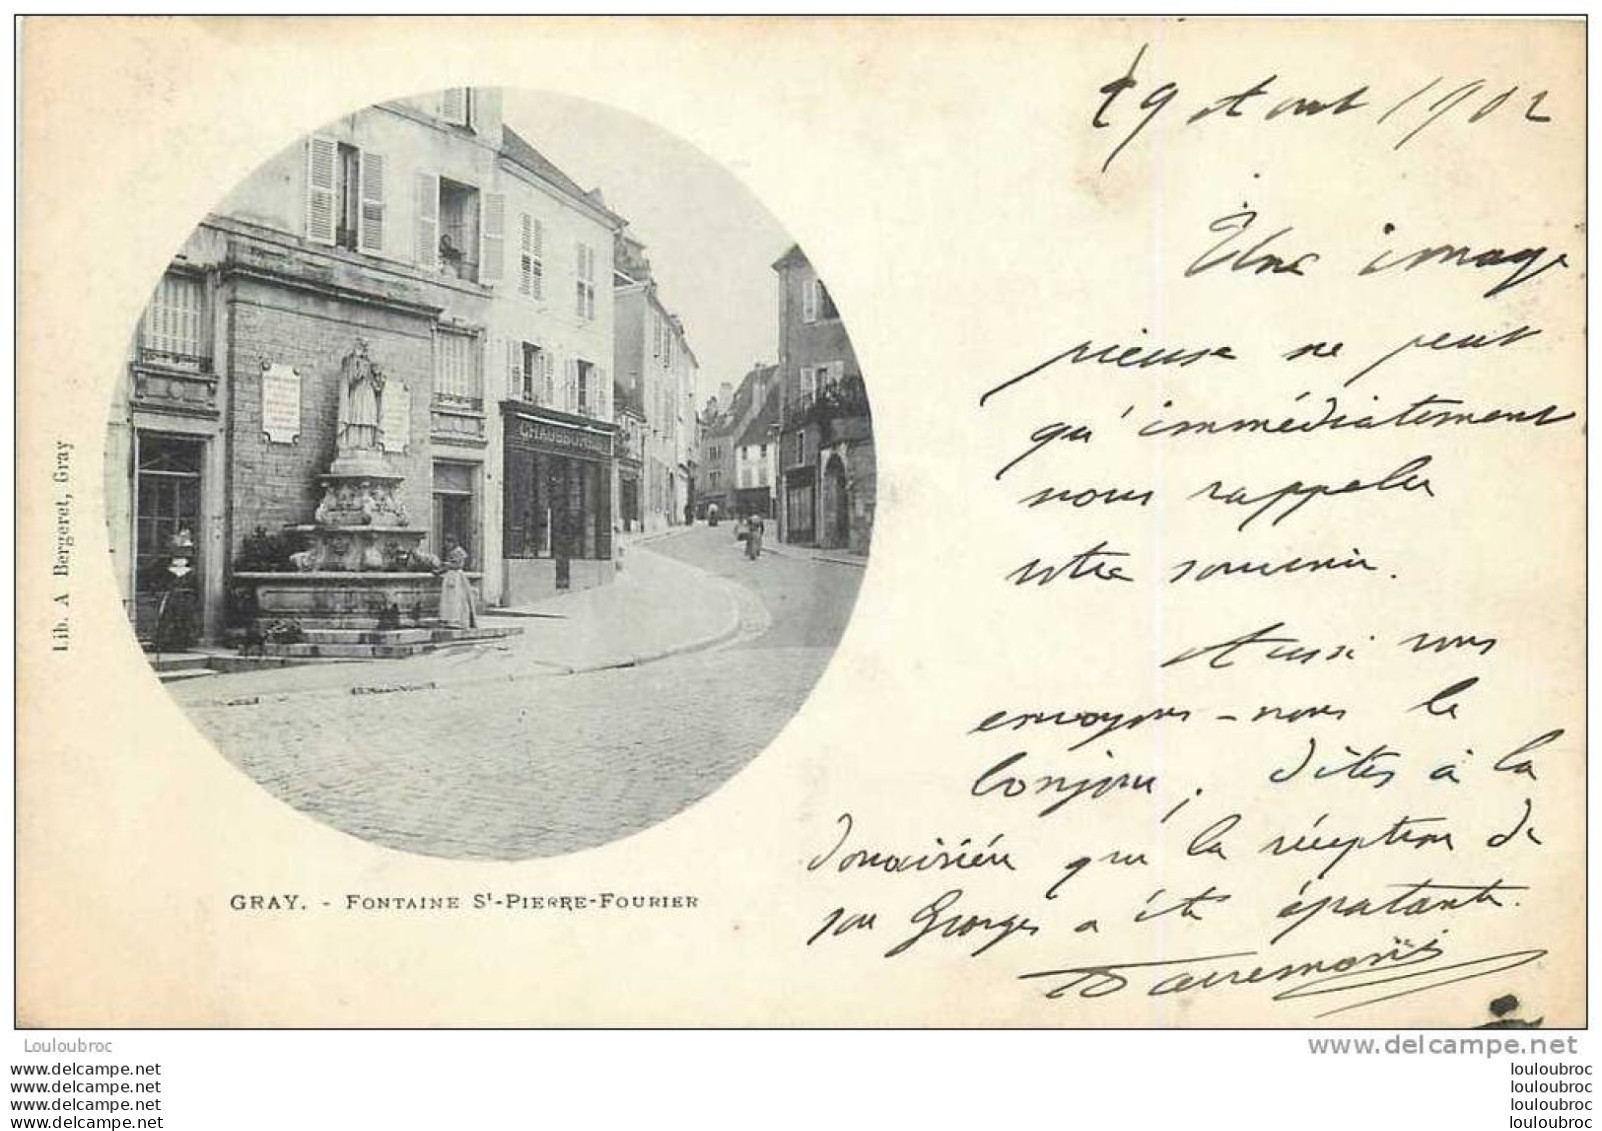 19 Aout 1902
Une image
pieuse ne peut
qu'immédiatement
nous rappeler
votre souvenir.
Aussi nous
envoyons-nous le
bonjour, dites à la
que la réception de
son Georges a été épatante.
CHAUSSURES
Lib. A Bergeret, Gray
GRAY. - FONTAINE St-PIERRE-FOURIER
Louloubroc
www.delcampe.net
www.delcampe.net
www.delcampe.net
www.delcampe.net
www.delcampe.net
louloubroc
louloubroc
louloubroc
louloubroc